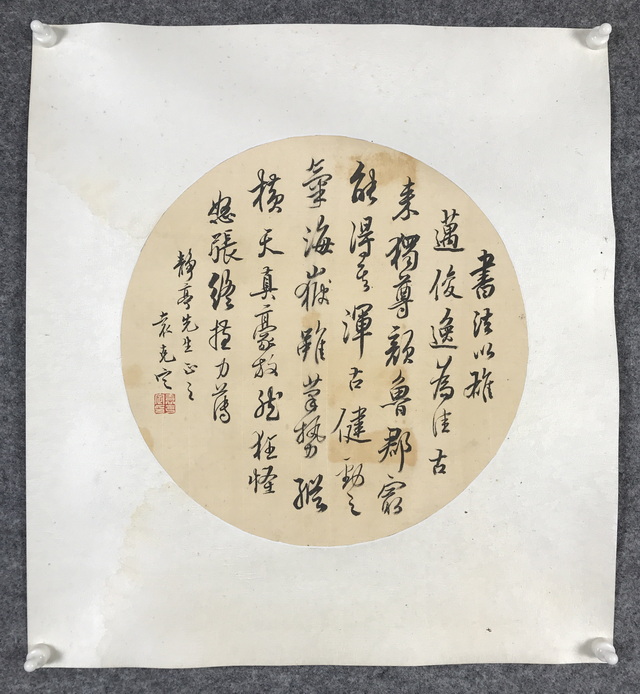 書法以雄
邁俊逸為佳古
來獨尊顏魯郡窮
能得其渾古健勁之
氣海嶽雖筆勢縱
橫天真豪放然狂怪
怒張終揸力薄
靜亭先生正之
袁克定